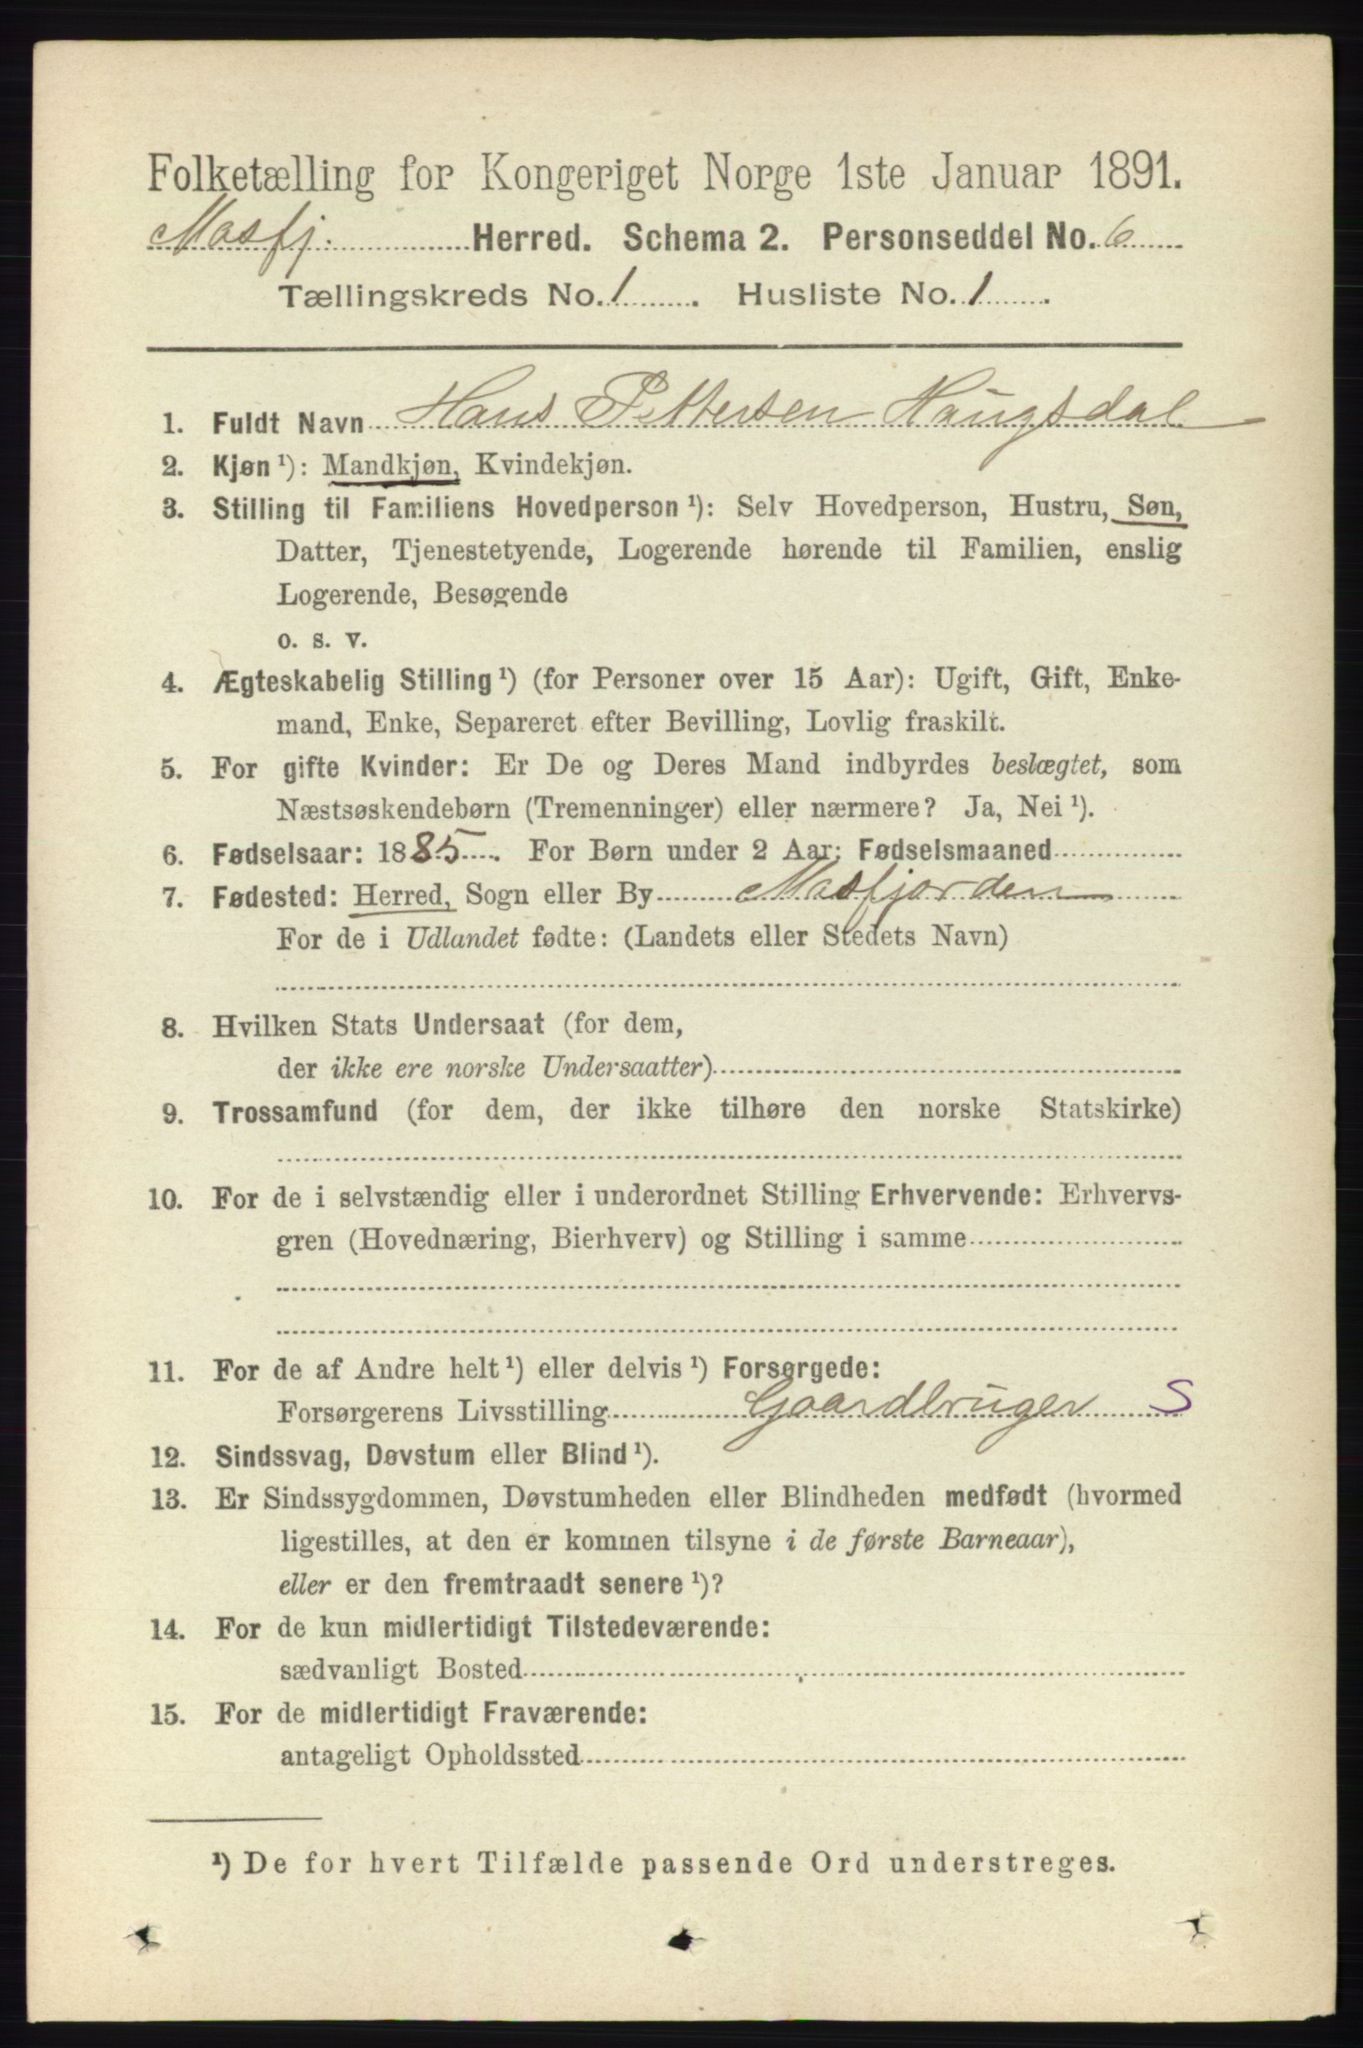 Folketælling for Kongeriget Norge 1ste Januar 1891.
Masfj. Herred. Schema 2. Personseddel No. 6
Tællingskreds No. 1 . Husliste No. 1 .
1. Fuldt Navn Hans Pettersen Haugsdal
2. Kjøn ¹): Mandkjøn, Kvindekjøn.
3. Stilling til Familiens Hovedperson ¹): Selv Hovedperson, Hustru, Søn,
Datter, Tjenestetyende, Logerende hørende til Familien, enslig
Logerende, Besøgende
o. s. v.
4. Ægteskabelig Stilling ¹) (for Personer over 15 Aar): Ugift, Gift, Enke-
mand, Enke, Separeret efter Bevilling, Lovlig fraskilt.
5. For gifte Kvinder: Er De og Deres Mand indbyrdes beslægtet, som
Næstsøskendebørn (Tremenninger) eller nærmere? Ja, Nei ¹).
6. Fødselsaar: 1885 . For Børn under 2 Aar: Fødselsmaaned
7. Fødested: Herred, Sogn eller By Masfjorden
For de i Udlandet fødte: (Landets eller Stedets Navn)
8. Hvilken Stats Undersaat (for dem,
der ikke ere norske Undersaatter)
9. Trossamfund (for dem, der ikke tilhøre den norske Statskirke)
10. For de i selvstændig eller i underordnet Stilling Erhvervende: Erhvervs-
gren (Hovednæring, Bierhverv) og Stilling i samme
11. For de af Andre helt ¹) eller delvis ¹) Forsørgede:
Forsørgerens Livsstilling Gaardbruger S
12. Sindssvag, Døvstum eller Blind ¹).
13. Er Sindssygdommen, Døvstumheden eller Blindheden medfødt (hvormed
ligestilles, at den er kommen tilsyne i de første Barneaar),
eller er den fremtraadt senere ¹)?
14. For de kun midlertidigt Tilstedeværende:
sædvanligt Bosted
15. For de midlertidigt Fraværende:
antageligt Opholdssted
¹) De for hvert Tilfælde passende Ord understreges.